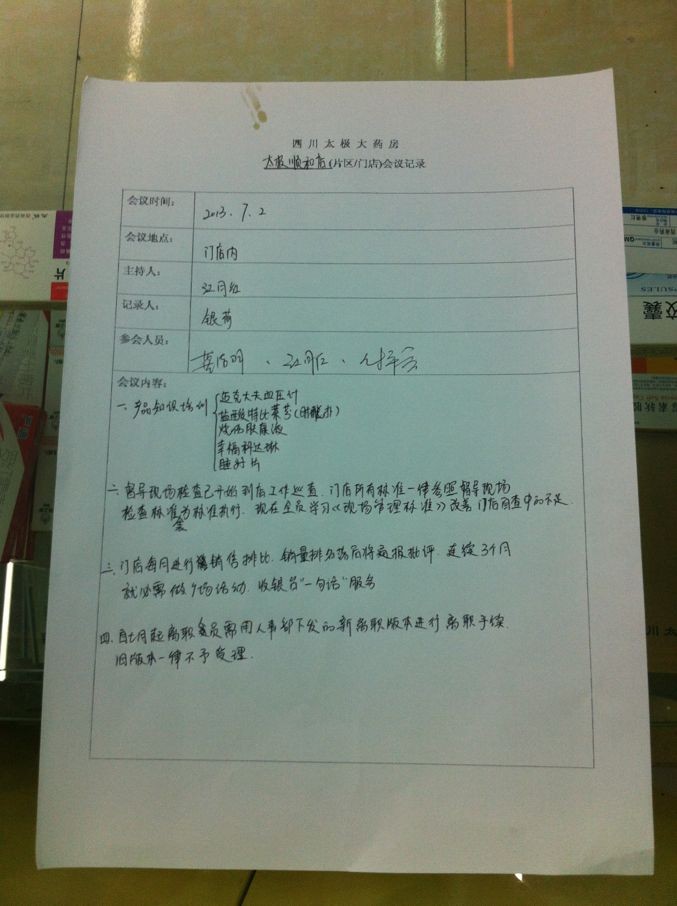 四川太极大药房
太极顺和店(片区/门店)会议记录
会议时间:
2013.7.2
会议地点:
门店内
主持人:
江月红
记录人:
银莉
参会人员:
会议内容:
一、产品知识培训
迈克大夫血压计
盐酸特比萘芬(时脱扑)
烧伤肤康液
幸福科达琳
睡好片
二、督导现场检查已开始到店工作巡查.门店所有标准一律参照督导现场
检查标准为标准执行.现在全员学习《现场管理标准》改善门店自查中的不足.
三、门店每月进行销售排比.销量排名落后将通报批评.连续3个月
就必需做1场活动.收银员“一句话”服务
四.自七月起离职人员需用人事部下发的新离职版本进行离职手续.
旧版本一律不予受理.
胶囊
片